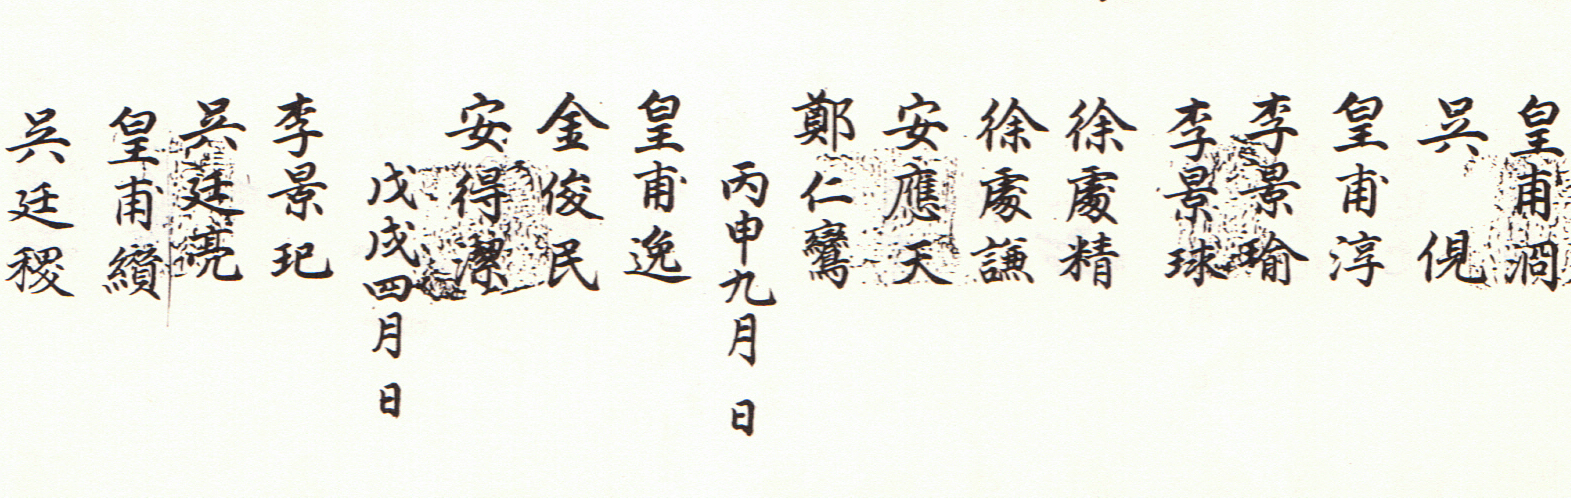 皇甫泂
吳 俔
皇甫淳
李景瑜
李景球
徐處精
徐處謙
安應天
鄭仁鸞
丙申九月 日
皇甫逸
金俊民
安得潔
戊戌四月 日
李景玘
吳廷亮
皇甫纘
吳廷稷